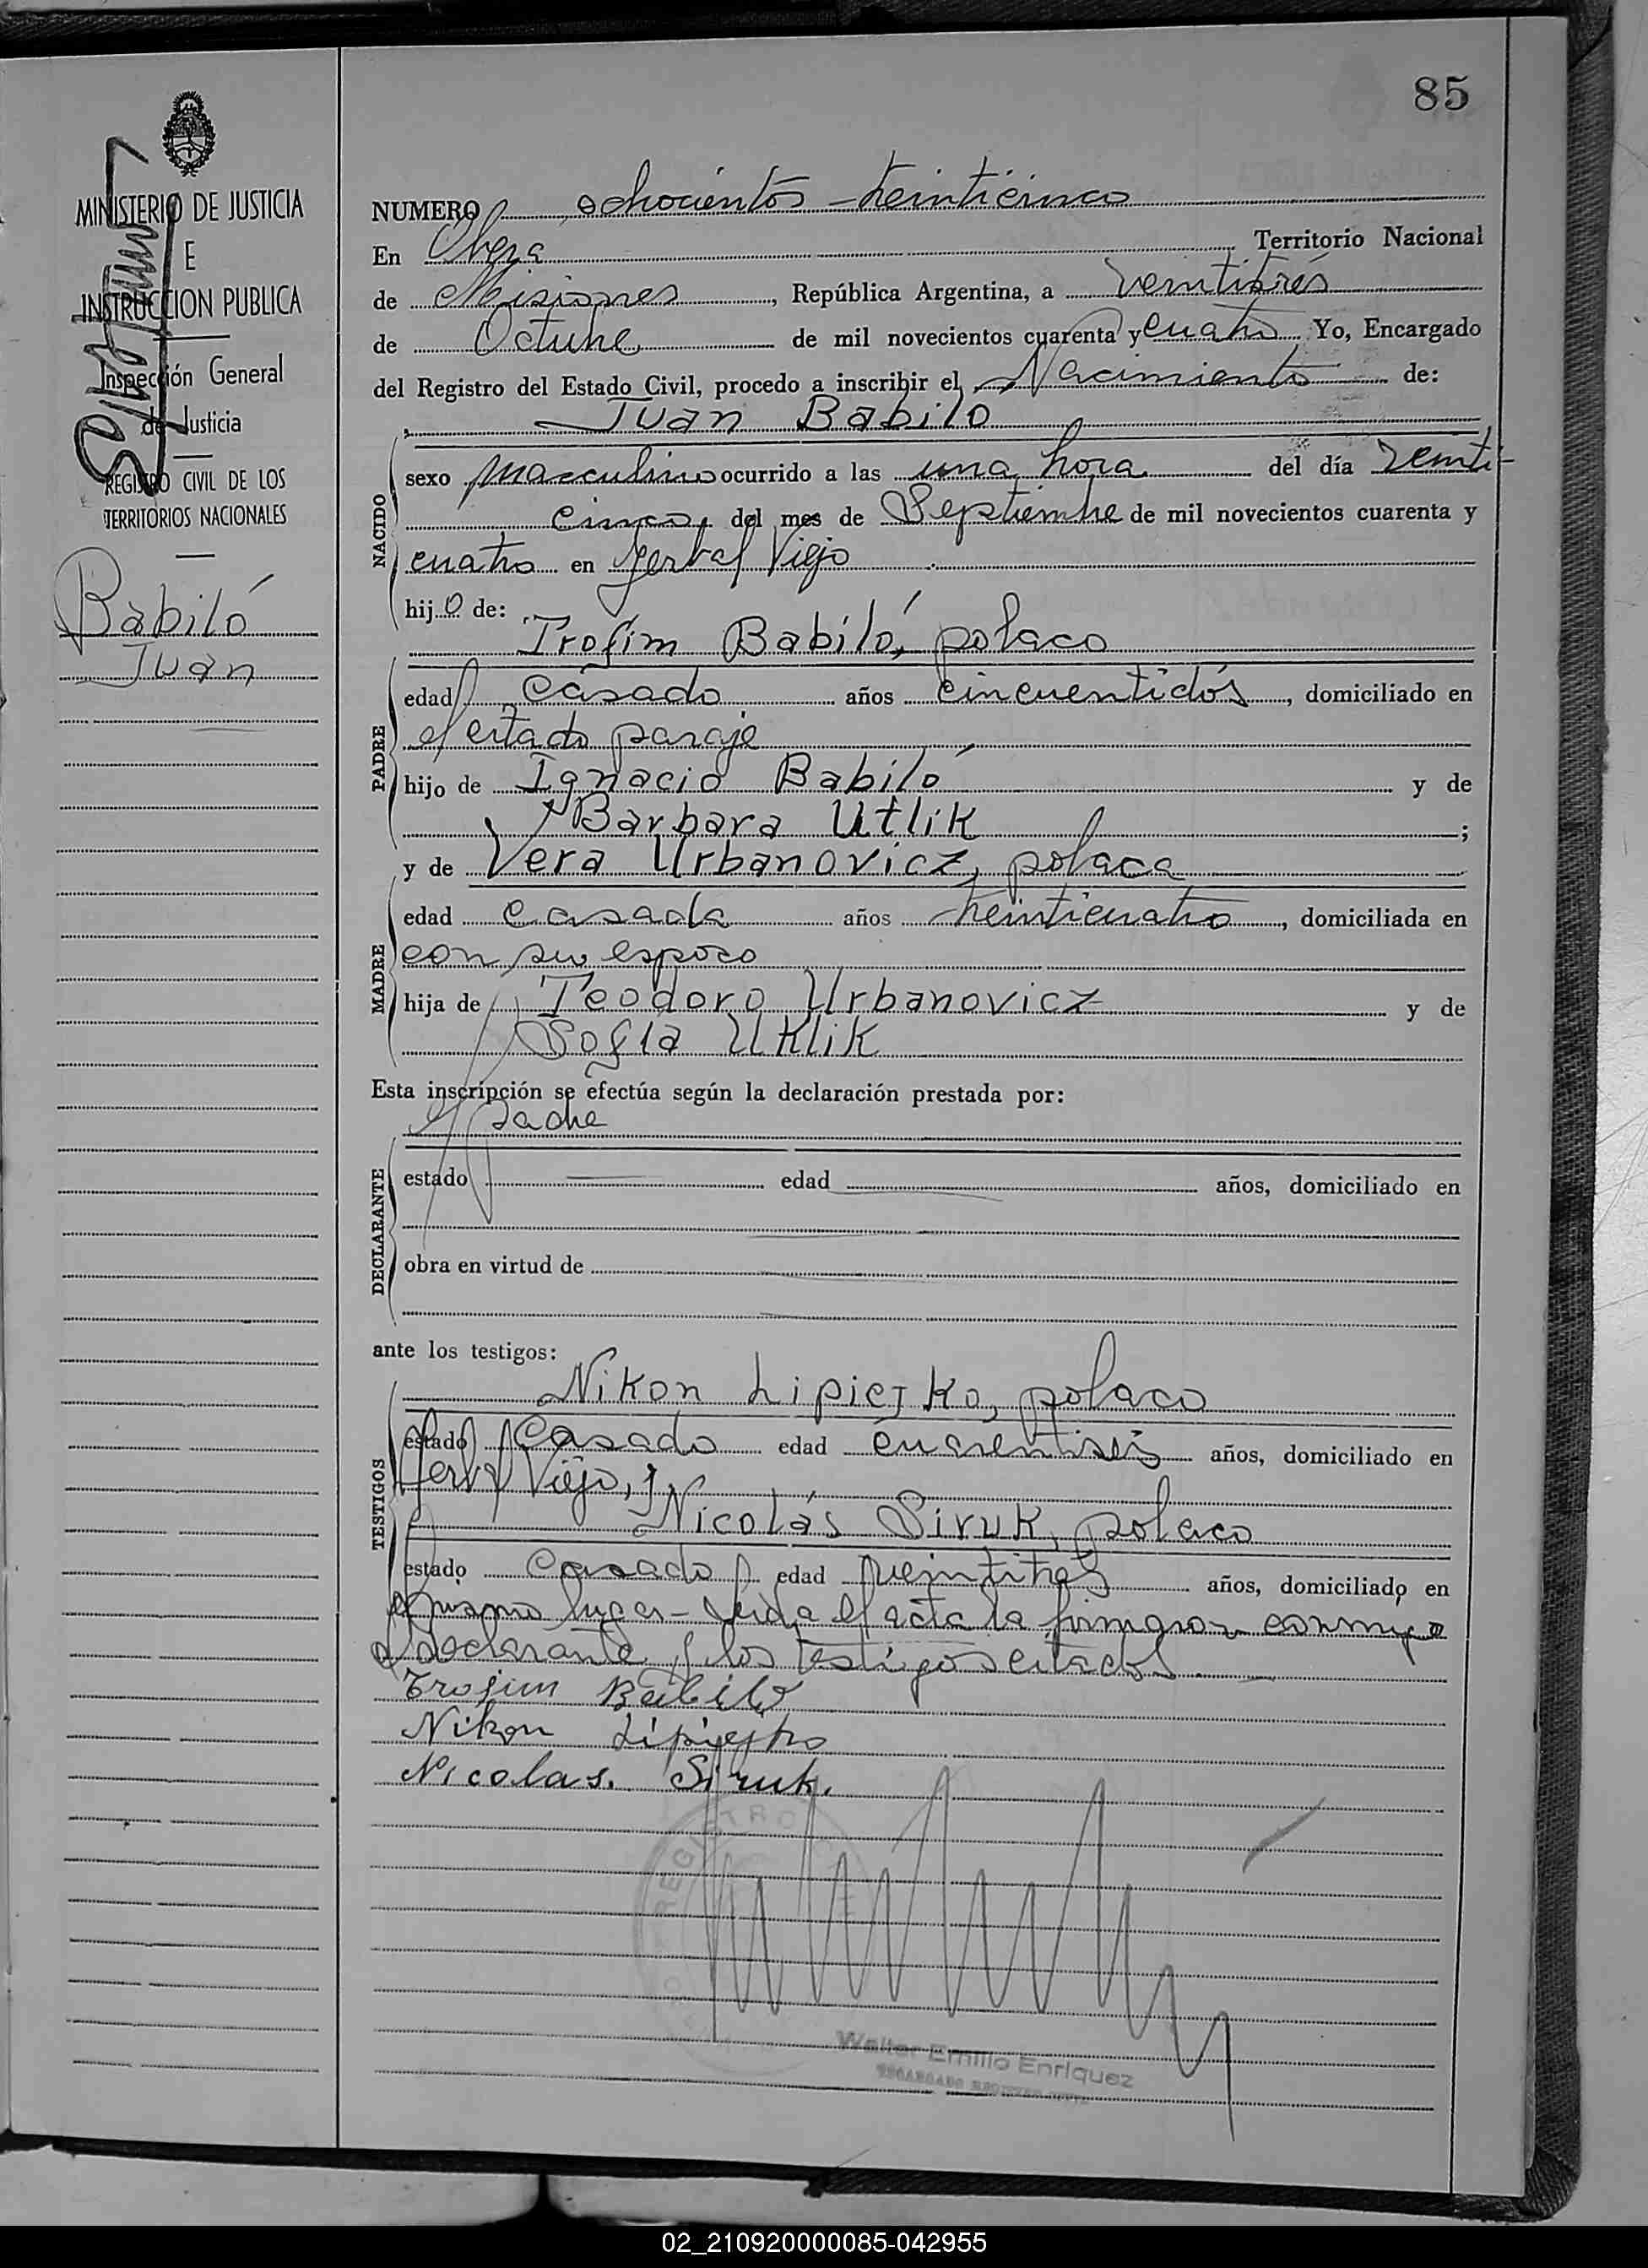 85
MINISTERIO DE JUSTICIA
E
INSTRUCCION PUBLICA
Inspección General
de Justicia
REGISTRO CIVIL DE LOS
TERRITORIOS NACIONALES
Babiló
Juan
NUMERO ochocientos treinticinco
En Oberá Territorio Nacional
de Misiones, República Argentina, a veintitrés
de Octubre de mil novecientos cuarenta y cuatro Yo, Encargado
del Registro del Estado Civil, procedo a inscribir el Nacimiento de:
Juan Babiló
NACIDO
sexo masculino ocurrido a las una hora del día veinti-
cinco, del mes de Septiembre de mil novecientos cuarenta y
cuatro en Yerbal Viejo
hijo de:
Trofim Babiló, polaco
PADRE
edad casado años cincuentidós, domiciliado en
el citado paraje
hijo de Ignacio Babiló y de
Barbara Utlik;
y de Vera Urbanovicz, polaca
MADRE
edad casada años treinticuatro, domiciliada en
con su esposo
hija de Teodoro Urbanovicz y de
Sofía Utklik
Esta inscripción se efectúa según la declaración prestada por:
el padre
DECLARANTE
estado edad años, domiciliado en
obra en virtud de
ante los testigos:
Nikon Lipiejko, polaco
TESTIGOS
estado casado edad cuarentiseis años, domiciliado en
Yerbal Viejo, y
Nicolás Siruk, polaco
estado casado edad veintitres años, domiciliado en
el mismo lugar - Leida el acta la firmaron conmigo
el declarante y los testigos citados
Trofim Babiló
Nikon Lipiejko
Nicolas. Siruk.
REGISTRO
Walter Emilio Enriquez
ENCARGADO REGISTRO CIVIL
02_210920000085-042955